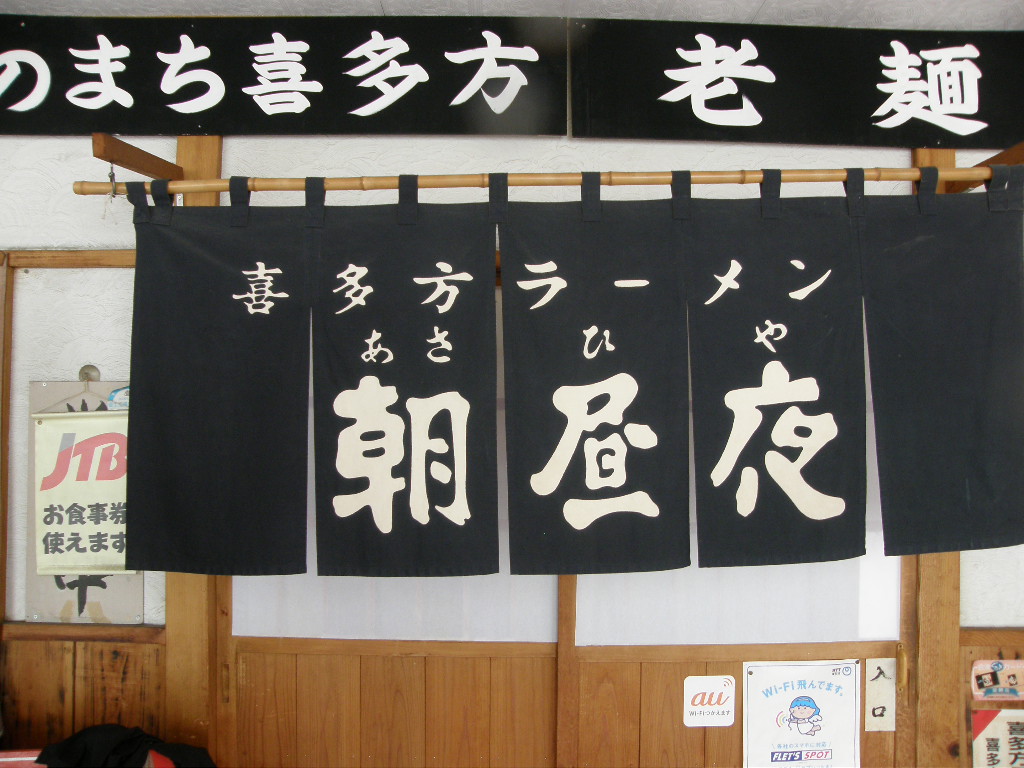 のまち喜多方 老麺
喜多方ラーメン
あさ ひ や
朝 昼 夜
JTB
お食事券
使えます
au
Wi-Fiつかえます
Wi-Fi飛んでます。
FLET'S SPOT
入口
喜多方
喜多